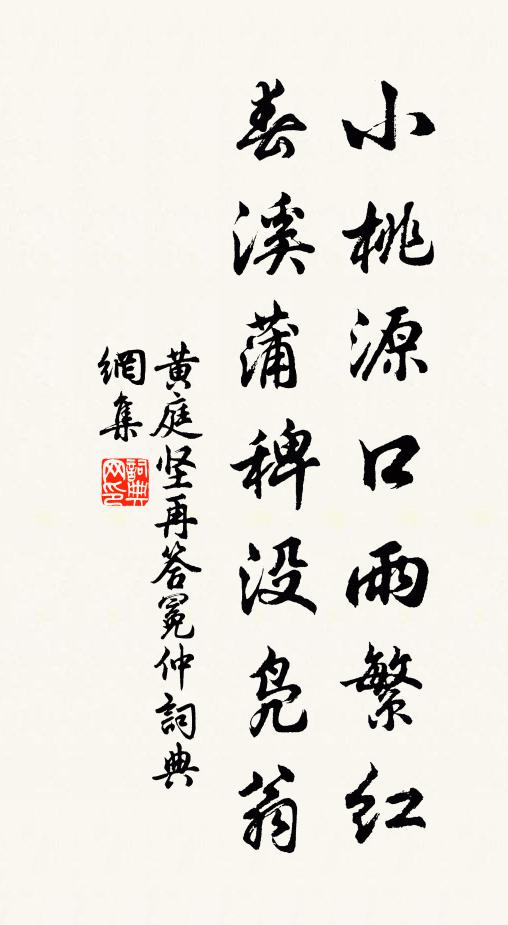 小桃源口雨繁红
春溪蒲稗没凫翁
黄庭坚再答冕仲詞典
網集
詞典网印